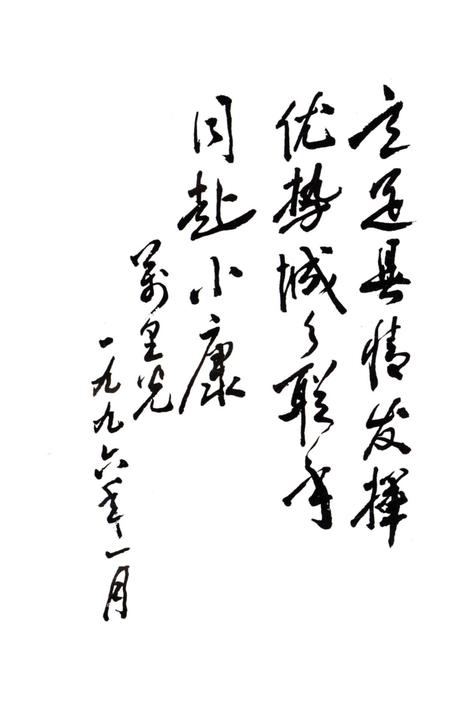 立足县情发揮
优势城乡联手
同赴小康
萬里光
一九九六年一月